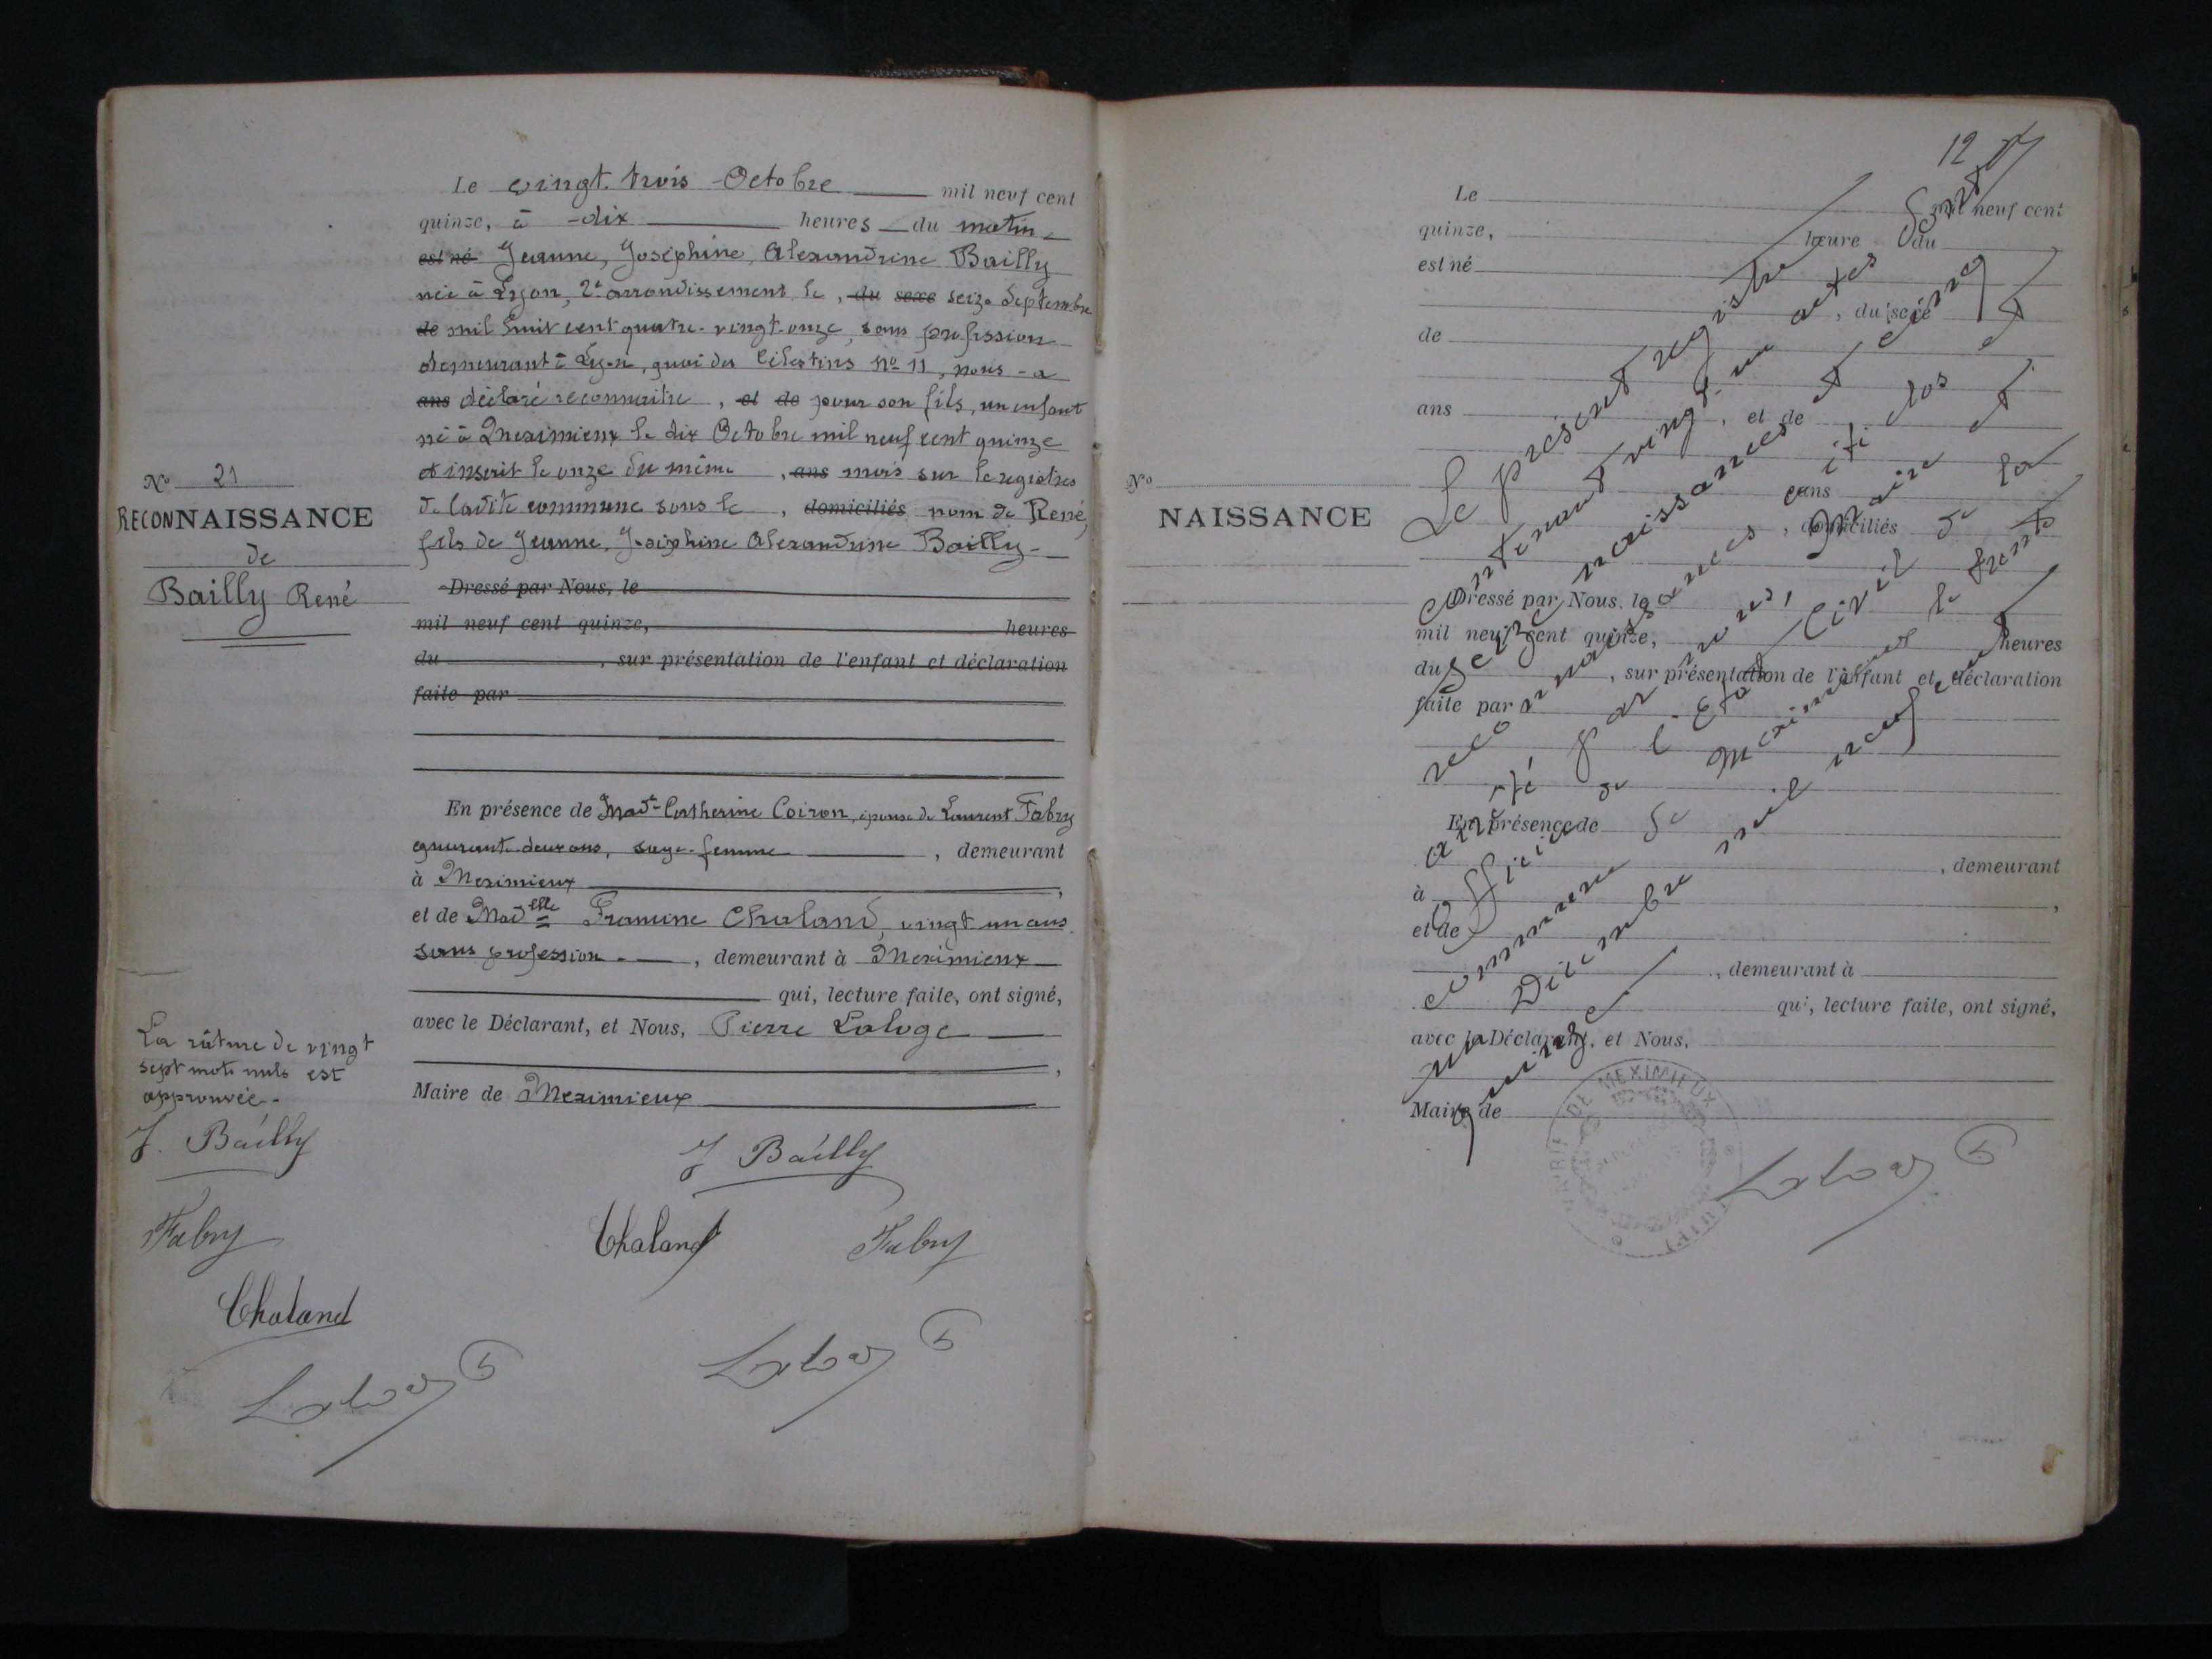 N° 21
RECONNAISSANCE
de
Bailly René
La rature de vingt
sept mots nuls est
approuvée.
J. Bailly
Fabry
Chaland
Le vingt-trois Octobre mil neuf cent
quinze, à dix heures du matin
est né Jeanne, Joséphine, Alexandrine Bailly
née à Lyon, 2e arrondissement, le, du sexe seize Septembre
de mil huit cent quatre-vingt-onze, sans profession
demeurant à Lyon, quai des Célestins No 11, nous a
ans déclaré reconnaître, et de pour son fils, un enfant
né à Meximieux le dix Octobre mil neuf cent quinze
et inscrit le onze du même, ans mois sur le registres
de ladite commune sous le, domiciliés nom de René,
fils de Jeanne, Joséphine Alexandrine Bailly
Dressé par Nous, le
mil neuf cent quinze, heures
du , sur présentation de l'enfant et déclaration
faite par
En présence de Made Catherine Coiron, épouse de Laurent Fabry
quarante-deux ans, sage-femme , demeurant
à Meximieux ,
et de Madelle Francine Chaland, vingt un ans
sans profession , demeurant à Meximieux
qui, lecture faite, ont signé,
avec le Déclarant, et Nous, Pierre Laloge
,
Maire de Meximieux
J Bailly
Chaland Fabry
12
N°
NAISSANCE
Le mil neuf cent
quinze, heure du
est né
, du sexe
de
ans , et de
ans
, domiciliés
Dressé par Nous, le
mil neuf cent quinze, heures
du , sur présentation de l'enfant et déclaration
faite par
En présence de
, demeurant
à ,
et de
, demeurant à
qui, lecture faite, ont signé,
avec le Déclarant, et Nous,
Maire de
Le présent registre
contenant vingt-un actes
seize naissances et cinq
reconnaissances a été clos et
arrêté par nous, Maire et
officier de l'Etat Civil de la
commune de Meximieux le trente
un Décembre mil neuf cent
quinze
MAIRIE DE MEXIMIEUX